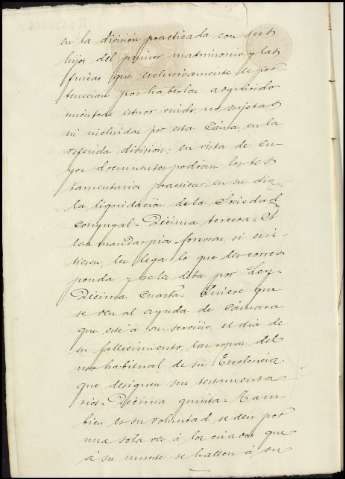 en la división practicada con sus
hijos del primer matrimonio y las
fincas que exclusivamente le per
tenecian por haberlas adquirido
mientras estuvo viudo no sujetas
ni incluidas por esta causa en la
referida division: en vista de cu-
yos documentos podran los tes
tamentarios practicar en su dia
la liquidacion de la Sociedad
conyugal = Décima tercera: A
las mandas pia-forzosas, si exis-
tiesen, les lega lo que les corres
ponda y se les deba por Ley=
Décima cuarta: Quiere que
se den al ayuda de Cámara
que esté á su servicio el dia de
su fallecimiento, las ropas del
uso habitual de su Excelencia
que designen sus testamenta
rios = Décima quinta: Tam
bien es su voluntad se den por
una sola vez á los criados que
á su muerte se hallen á su